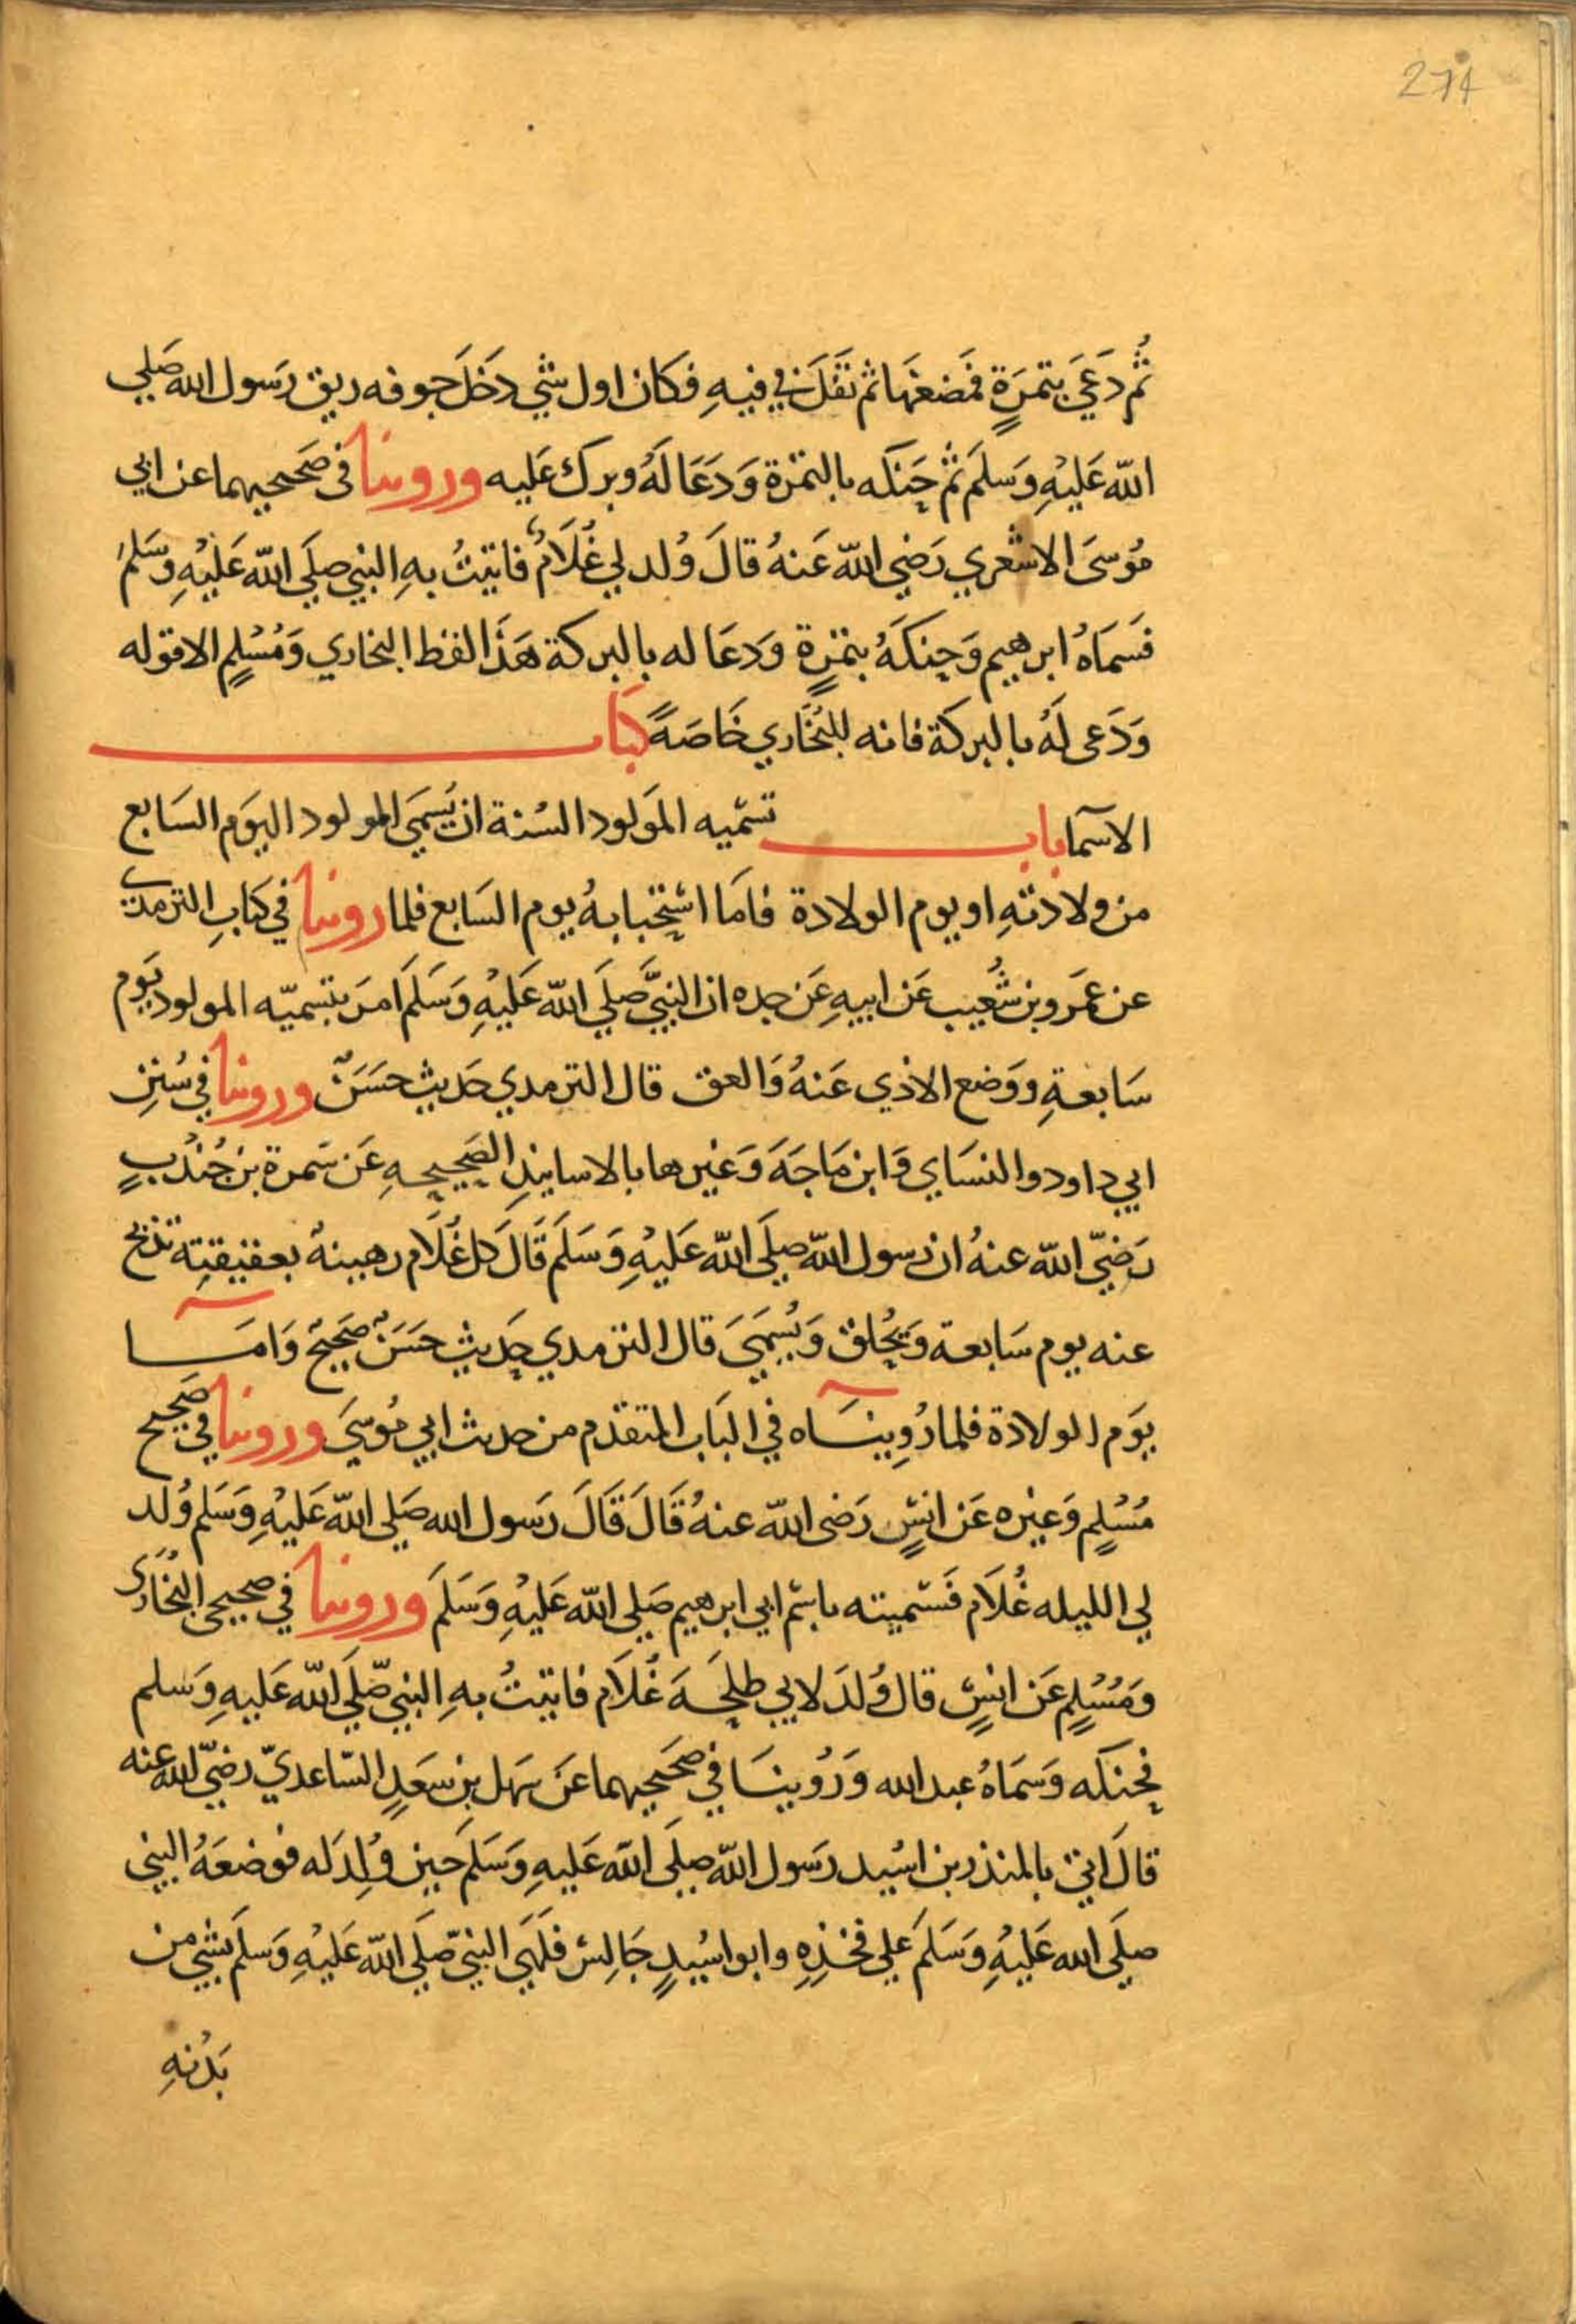 274
ثُم دَعَيَ بتمرَةٍ فمَضغهَا ثم تفَلَ في فيهِ فكان اول شي دَخَلَ جوفه ريق رَسول الله صَلي
الله عَليْهِ وَسلمَ ثم حَنكه بالتمْرة وَدَعَا لهُ وبرك عَليه وروينا في صَحيحيهما عن ابي
مُوسَى الاشعري رَضي الله عَنهُ قالَ وُلد لي غُلَامٌ فاتيتُ بهِ النبي صلَي الله عَليْهِ وَسَلمَ
فسَماهُ ابرهيم وَحنكَهُ بتمْرةٍ وَدعَا له بالبركة هَذَا لفظ البخاري وَمُسْلمٍ الا قوله
وَدَعى لَهُ بالبركَة فانه للبُخَاري خَاصَةً كتاب
الاسما باب تسْميه المَولود السُنة ان يُسمَي المولود اليوَم السَابع
من ولادتهِ او يوم الولادة فامَا استحبابهُ يوم السَابع فلما روينا في كتابِ الترمدي
عن عَمَرو بن شُعَيب عَن ابيهِ عَن جده ان النبيَّ صَلَي الله عَليْهِ وَسَلمَ امرَ بتسميّه المولود يَوم
سَابعةِ ووَضع الاذي عَنهُ وَالعق قال الترمدي حَديث حَسَنٌ وروينا في سُننِ
ابي داود والنسَاي وَابن مَاجَهَ وَغيرها بالاسانيدِ الصَحيحهِ عَن سَمرة بن جُندُبٍ
رَضيّ الله عنهُ ان رسول الله صلَي الله عَليهِ وَسَلمَ قَالَ كل غُلَام رهينهٌ بعقيقتِه تذبح
عنه يوم سَابعة وَيُحلق وَيُسمَيَ قال الترمدي حَديث حسَنٌ صَحيح وَامَا
يوَم الولادة فلما رُوِينَاه في البَاب المتقدّم من حديث ابي مُوسَيَ وروينا في صَحيح
مُسْلمٍ وَغيْره عَن انسٍ رَضى الله عنهُ قَالَ قَالَ رَسول الله صَلي الله عَليْهِ وَسَلم وُلد
لي الليله غُلَام فَسَميته باسْم ابي ابرهيم صَلي الله عَليْهِ وَسَلمَ وروينا في صحيحى البُخَاري
وَمُسْلمٍ عَن انسٍ قال وُلدَ لابي طلحَهَ غُلَام فاتيتُ بهِ النبي صّلَي الله عَليهِ وَسلم
فحنكه وَسَمَاهُ عبد الله وَرُوينَا في صَحَيحيهما عَن سهَل بن سعَدٍ السّاعديّ رضيّ الله عنه
قالَ اتي بالمنذر بن اسُيد رَسول الله صلَي الله عَليهِ وَسَلمَ حَين وُلِدَ له فوضعَهُ النبي
صلَي الله عَليْهِ وَسَلمَ علي فخذِهِ وابو اسُيدٍ جَالِس فلَهَي النبيّ صّلَي الله عَليْهِ وَسلمَ بشي من
بَدُنهِ